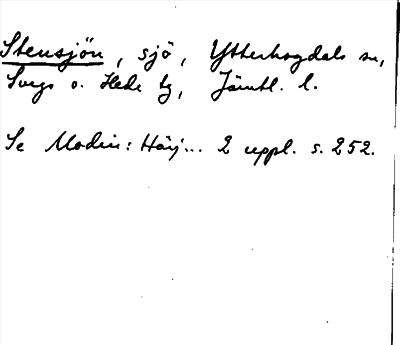 Stensjön, sjö, Ytterhogdals sn,
Svegs o. Hede tg, Jämtl. l.
Se Modin: Härj... 2 uppl. s. 252.